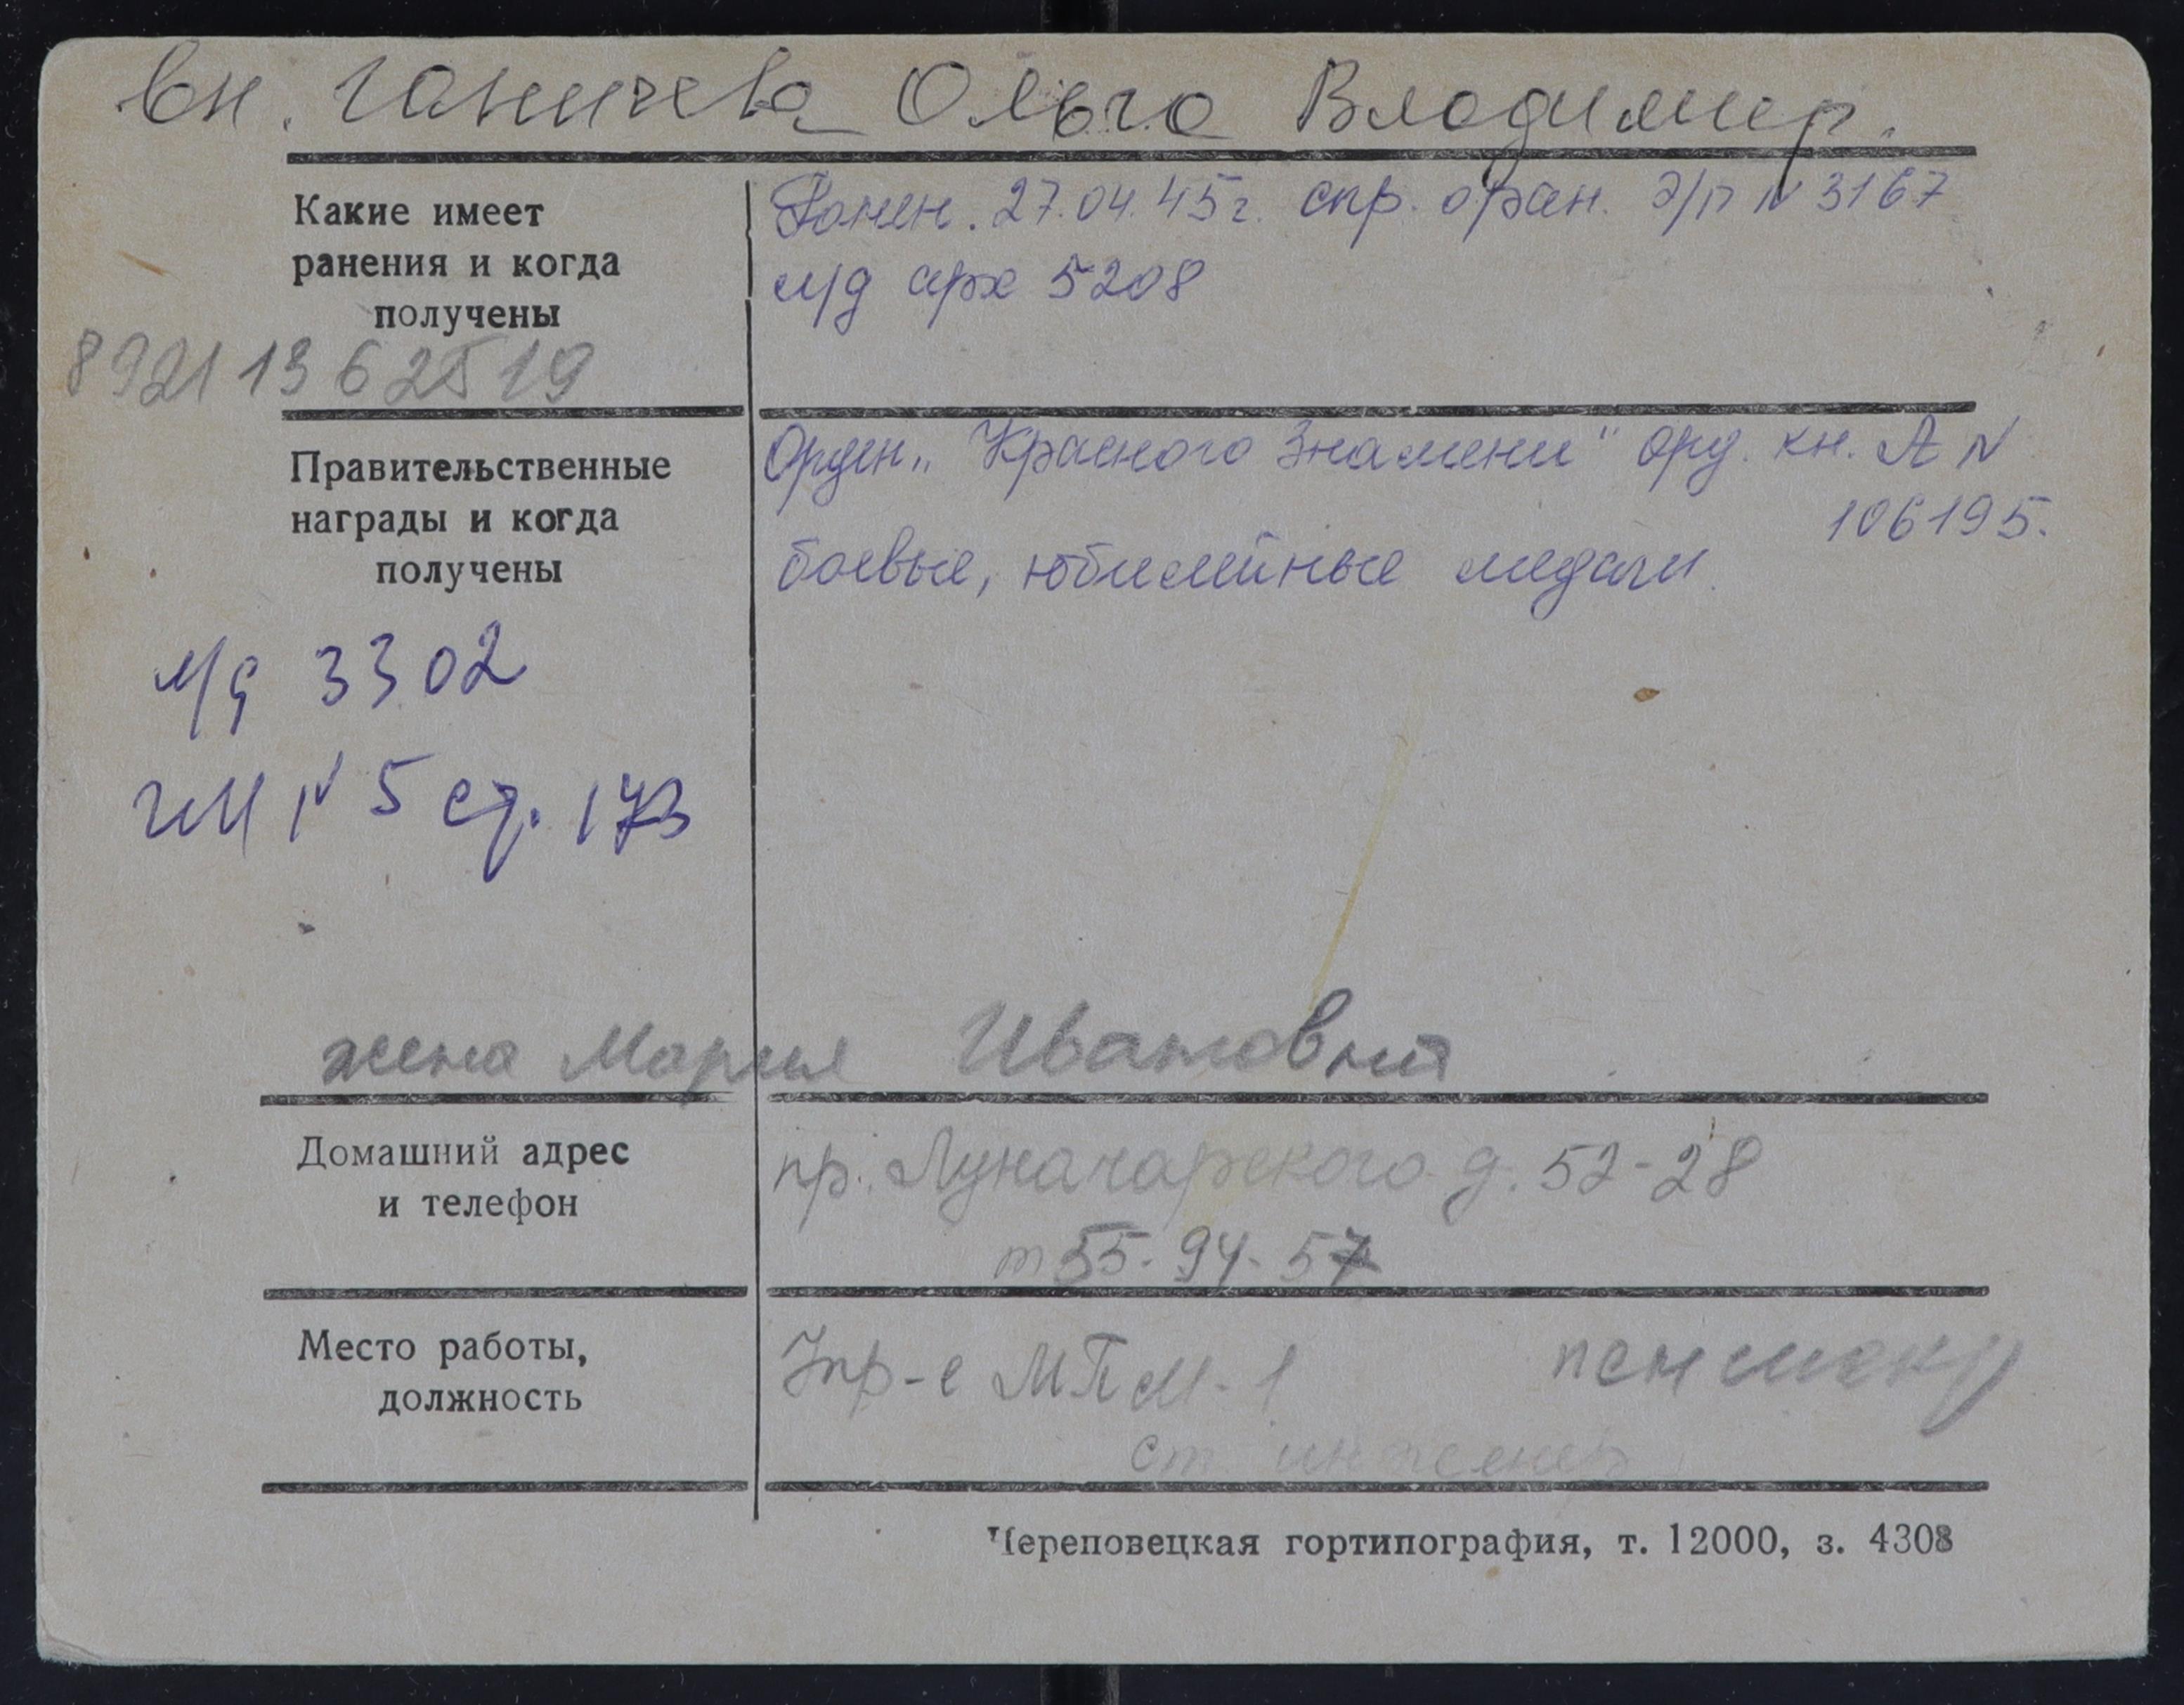 вн. Ганичева Ольга Владимир.
Какие имеет
ранения и когда
получены
Ранен. 27.04.45г. спр. о ран. э/п N 3167
м/д арх 5208
89211362519
Правительственные
награды и когда
получены
Орден „Красного Знамени" Орд. кн. А N
106195.
боевые, юбилейные медали.
м/д 3302
N 5 ст. 173
жена Мария Ивановна
Домашний адрес
и телефон
пр. Луначарского д. 52-28
т 55-94-57
Место работы,
должность
Упр-е МПМ-1
ст инженер
Череповецкая гортипография, т. 12000, з. 4308